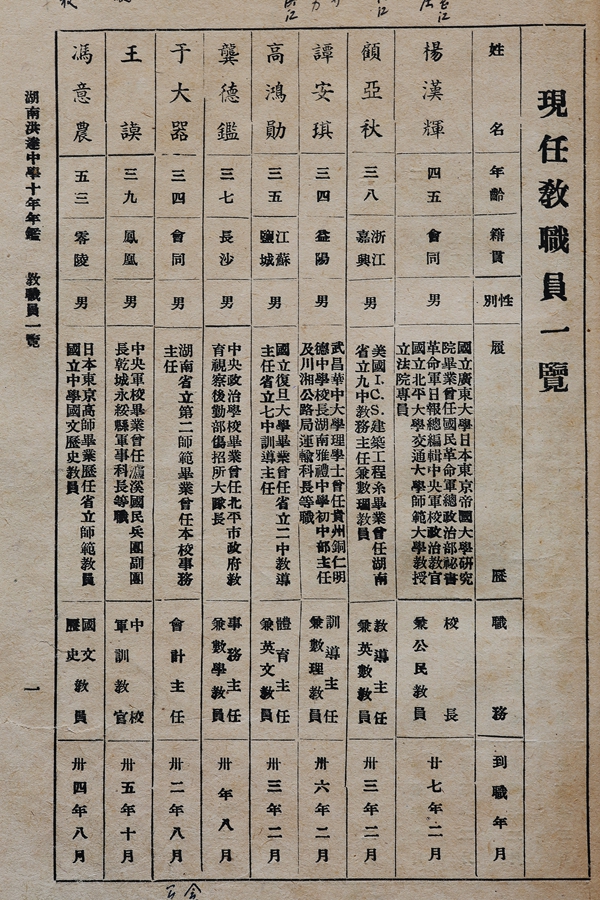 現任教職員一覽
姓名 年齡 籍貫 性別 履歷 職務 到職年月
楊漢輝 四五 會同 男 國立廣東大學日本東京帝國大學研究院畢業曾任國民革命軍總政治部祕書革命軍日報總編輯中央軍校政治教官國立北平大學交通大學師範大學教授立法院專員 校長兼公民教員 廿七年二月
顧亞秋 三八 浙江嘉興 男 美國I.C.S.建築工程系畢業曾任湖南省立九中教務主任兼數理教員 教導主任兼英數教員 卅三年二月
譚安琪 三四 益陽 男 武昌華中大學理學士曾任貴州銅仁明德中學校長湖南雅禮中學初中部主任及川湘公路局運輸科長等職 訓導主任兼數理教員 卅六年二月
高鴻勛 三五 江蘇鹽城 男 國立復旦大學畢業曾任省立二中教導主任省立七中訓導主任 體育主任兼英文教員 卅三年二月
龔德鑑 三七 長沙 男 中央政治學校畢業曾任北平市政府教育視察後勤部傷招所大隊長 事務主任兼數學教員 卅年八月
于大器 三四 會同 男 湖南省立第二師範畢業曾任本校事務主任 會計主任 卅二年八月
王謨 三九 鳳凰 男 中央軍校畢業曾任瀘溪國民兵團副團長乾城永綏縣軍事科長等職 中校軍訓教官 卅五年十月
馮意農 五三 零陵 男 日本東京高師畢業歷任省立師範教員國立中學國文歷史教員 國文歷史教員 卅四年八月
湖南洪達中學十年年鑑 教職員一覽 一